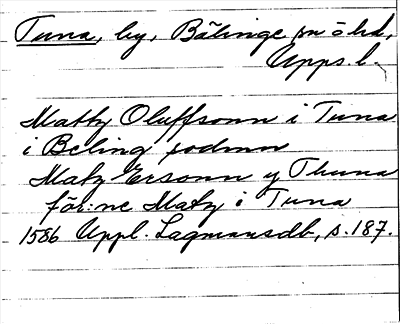 Tuna, by, Bälinge sn o hd,
Upps l.
Matz Oluffsonn i Tuna
i Beling sodmn
Matz Ersonn y Thuna
för:ne Matz i Tuna
1586 Uppl. Lagmansdb, s. 187.